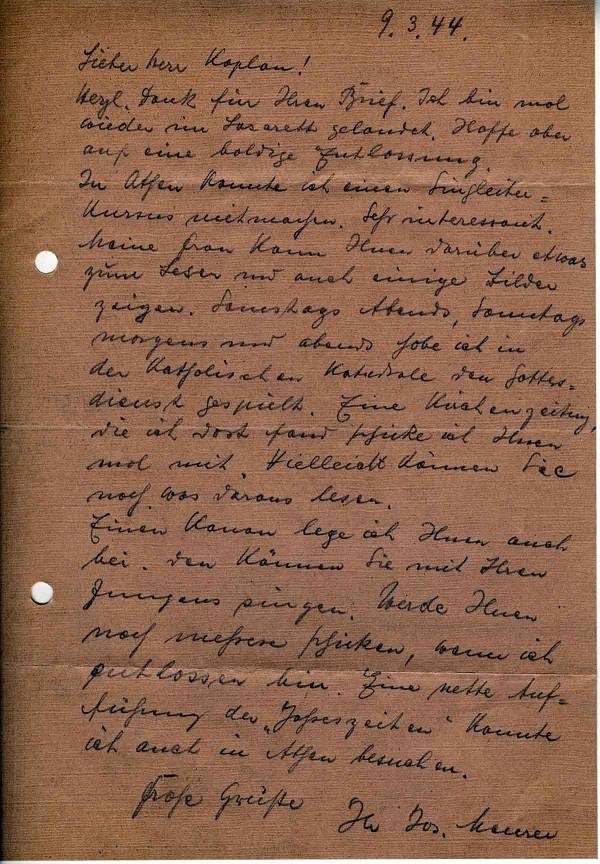 9. 3. 44.
Lieber Herr Kaplan!
Herzl. Dank für Ihren Brief. Ich bin mal
wieder im Lazarett gelandet. Hoffe aber
auf eine baldige Entlassung.
In Athen konnte ich einen Singleiter-
Kursus mitmachen. Sehr interessant.
Meine Frau kann Ihnen darüber etwas
zum Lesen und auch einige Bilder
zeigen. Samstags Abends, Sonntags
morgens und abends habe ich in
der Katholischen Katedrale den Gottes-
dienst gespielt. Eine Kirchenzeitung,
die ich dort fand schicke ich Ihnen
mal mit. Vielleicht können Sie
noch was daraus lesen.
Einen Kanon lege ich Ihnen auch
bei. Den können Sie mit Ihren
Jungens singen. Werde Ihnen
noch mehrere schicken, wenn ich
entlassen bin. Eine nette Auf-
führung der „Jahreszeiten" konnte
ich auch in Athen besuchen.
Frohe Grüße
Ihr Jos. Maurer